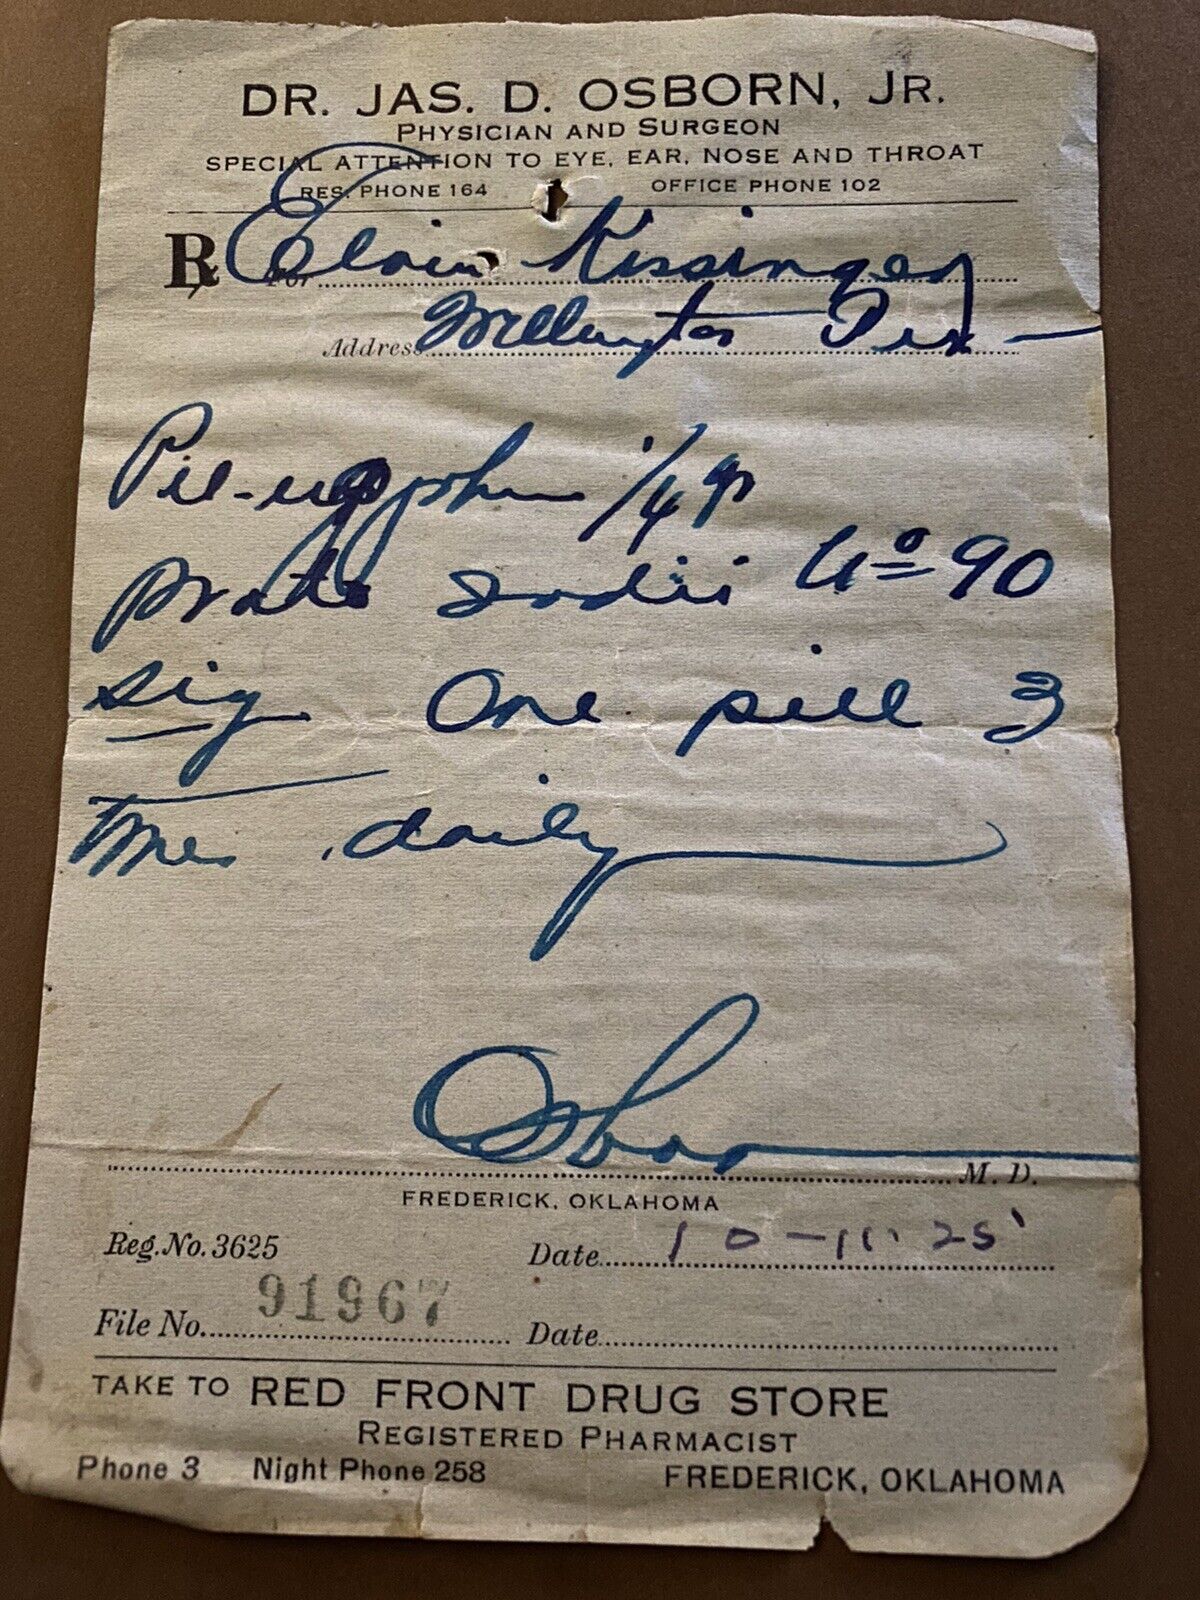 DR. JAS. D. OSBORN, JR.
PHYSICIAN AND SURGEON
SPECIAL ATTENTION TO EYE, EAR, NOSE AND THROAT
RES. PHONE 164 OFFICE PHONE 102
Rx For Kissinger
Address Wellington Tex
Pil-upjohn 1/4 gr
sodii No 90
Sig One pill 3
times daily
Osborn M. D.
FREDERICK, OKLAHOMA
Reg. No. 3625 Date 10-11-25'
File No. 91967 Date
TAKE TO RED FRONT DRUG STORE
REGISTERED PHARMACIST
Phone 3 Night Phone 258 FREDERICK, OKLAHOMA